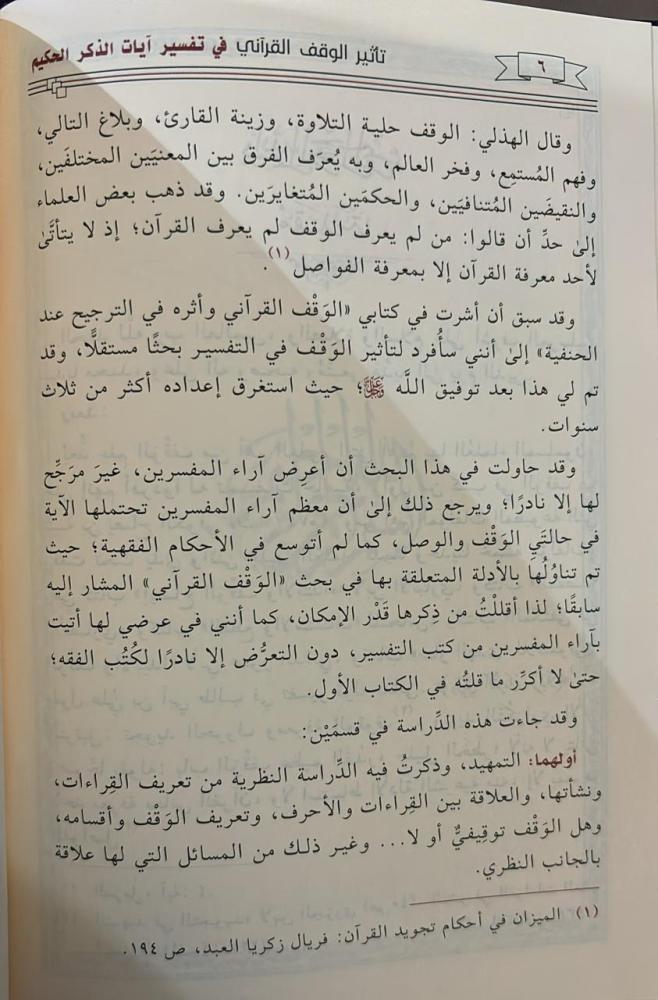 ٦
تأثير الوقف القرآني في تفسير آيات الذكر الحكيم
وقال الهذلي: الوقف حلية التلاوة، وزينة القارئ، وبلاغ التالي،
وفهم المُستمِع، وفخر العالم، وبه يُعرَف الفرق بين المعنيَين المختلفَين،
والنقيضَين المُتنافيَين، والحكمَين المُتغايرَين. وقد ذهب بعض العلماء
إلىٰ حدِّ أن قالوا: من لم يعرف الوقف لم يعرف القرآن؛ إذ لا يتأتَّىٰ
لأحد معرفة القرآن إلا بمعرفة الفواصل(١).
وقد سبق أن أشرت في كتابي «الوَقْف القرآني وأثره في الترجيح عند
الحنفية» إلىٰ أنني سأُفرد لتأثير الوَقْف في التفسير بحثًا مستقلًّا، وقد
تم لي هذا بعد توفيق اللَّه ﷿؛ حيث استغرق إعداده أكثر من ثلاث
سنوات.
وقد حاولت في هذا البحث أن أعرِض آراء المفسرين، غيرَ مرَجِّح
لها إلا نادرًا؛ ويرجع ذلك إلىٰ أن معظم آراء المفسرين تحتملها الآية
في حالتَيِ الوَقْف والوصل، كما لم أتوسع في الأحكام الفقهية؛ حيث
تم تناوُلُها بالأدلة المتعلقة بها في بحث «الوَقْف القرآني» المشار إليه
سابقًا؛ لذا أقللْتُ من ذِكرها قَدْر الإمكان، كما أنني في عرضي لها أتيت
بآراء المفسرين من كتب التفسير، دون التعرُّض إلا نادرًا لكُتُب الفقه؛
حتىٰ لا أكرِّر ما قلتُه في الكتاب الأول.
وقد جاءت هذه الدِّراسة في قسمَيْن:
أولهما: التمهيد، وذكرتُ فيه الدِّراسة النظرية من تعريف القِراءات،
ونشأتها، والعلاقة بين القِراءات والأحرف، وتعريف الوَقْف وأقسامه،
وهل الوَقْف توقِيفيٌّ أو لا... وغير ذلك من المسائل التي لها علاقة
بالجانب النظري.
(١) الميزان في أحكام تجويد القرآن: فريال زكريا العبد، ص ١٩٤.